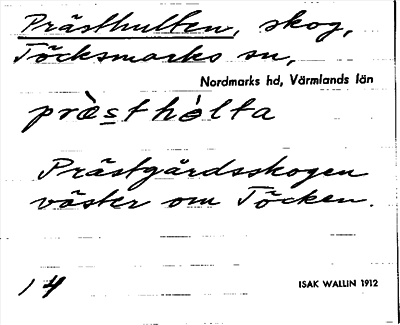 Prästhulten, skog,
Töcksmarks sn,
Nordmarks hd, Värmlands län
præ̀sthólta
Prästgårdsskogen
väster om Töcken.
14
ISAK WALLIN 1912